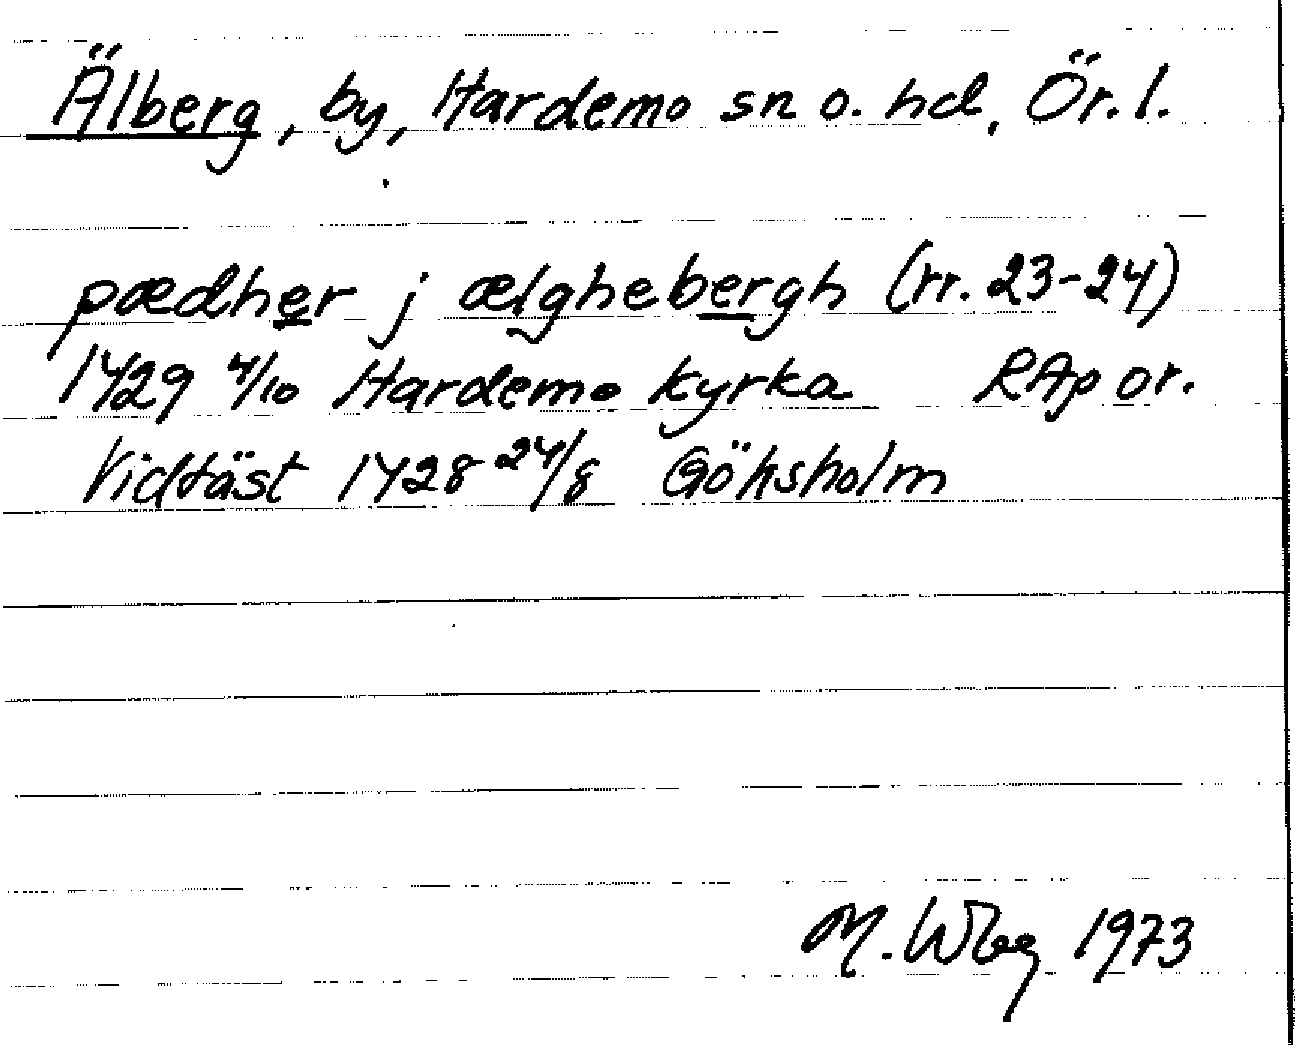 Älberg, by, Hardemo sn o. hd, Ör. l.
pædher j ælghebergh (rr. 23-24)
1429 4/10 Hardemo kyrka RAp or.
Vidtäst 1428 24/8 Göksholm
M. Wbg 1973